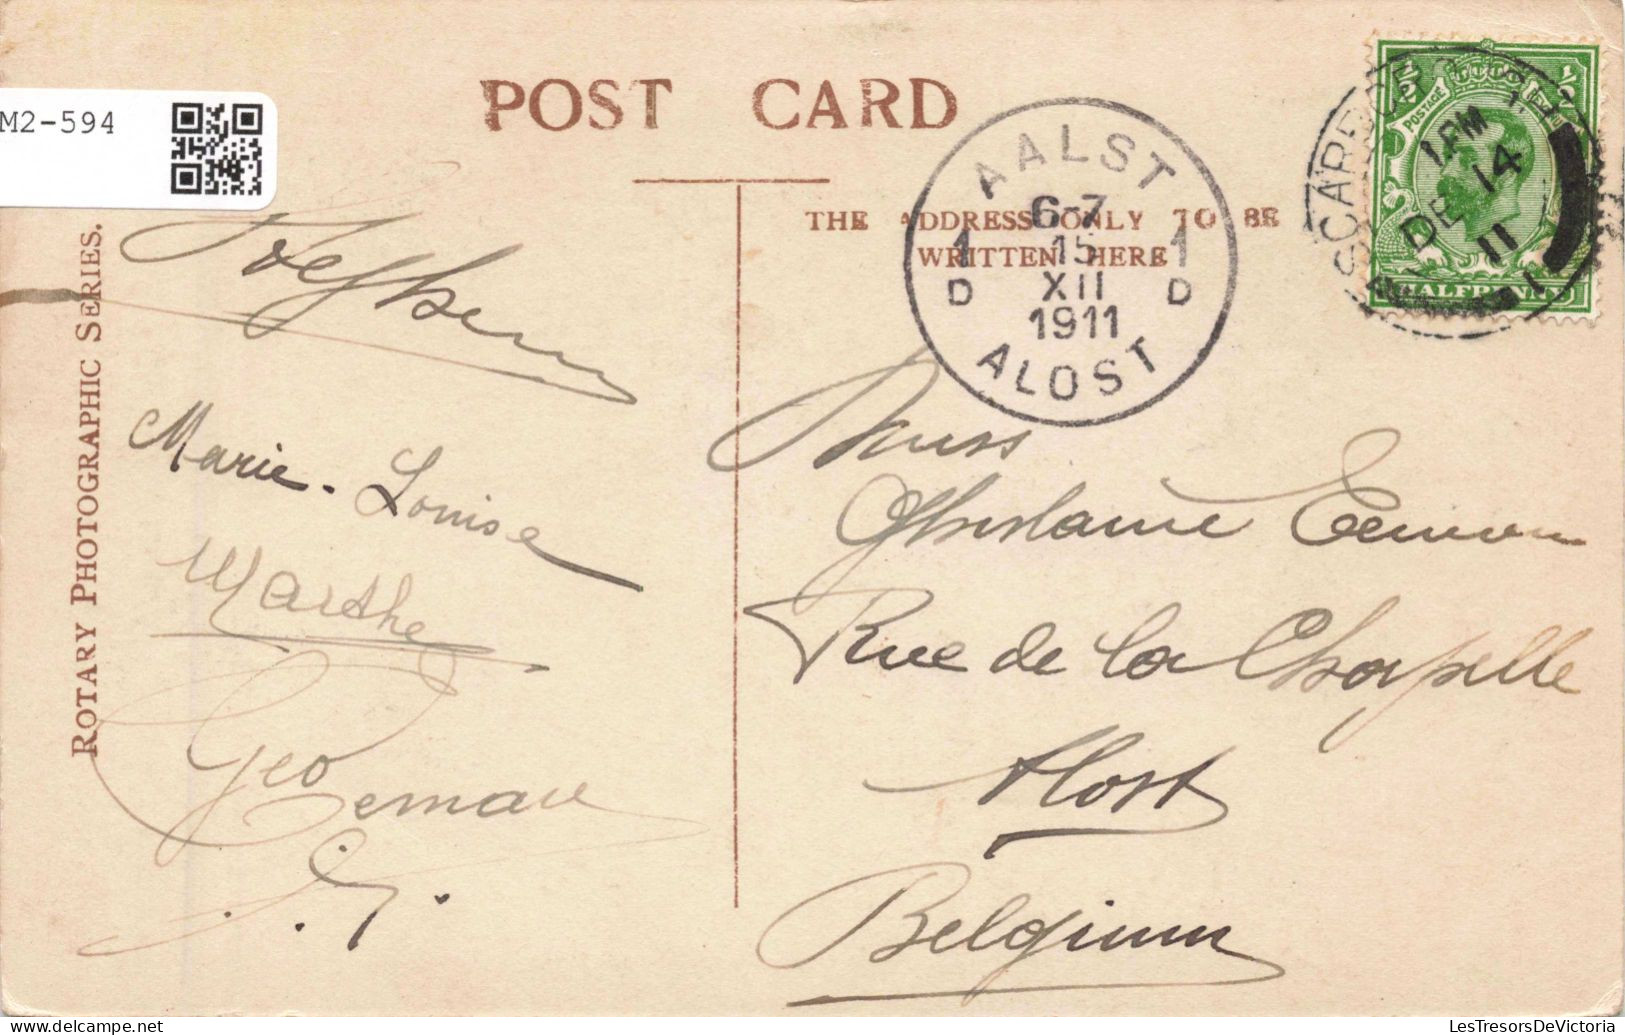 M2-594
POST CARD
ROTARY PHOTOGRAPHIC SERIES.
THE ADDRESS ONLY TO BE
WRITTEN HERE
AALST
6-7
15
XII
1911
1 D
1 D
ALOST
SCARBORO
1 PM
DE 14
11
POSTAGE
1/2
1/2
HALFPENNY
Marie-Louise
Marthe
Geo
Miss
Ghislaine
Rue de la Chapelle
Alost
Belgium
LesTresorsDeVictoria